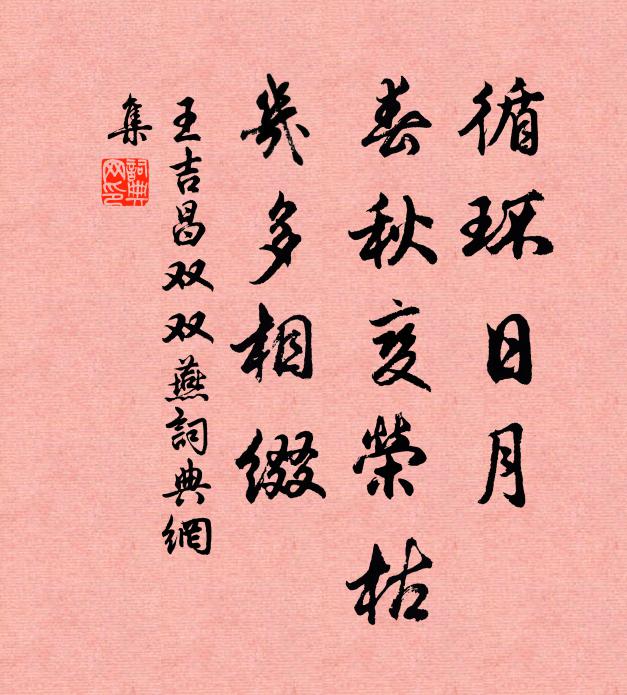 循环日月
春秋变荣枯
几多相缀
王吉昌双双燕詞典網
集
詞典
网印